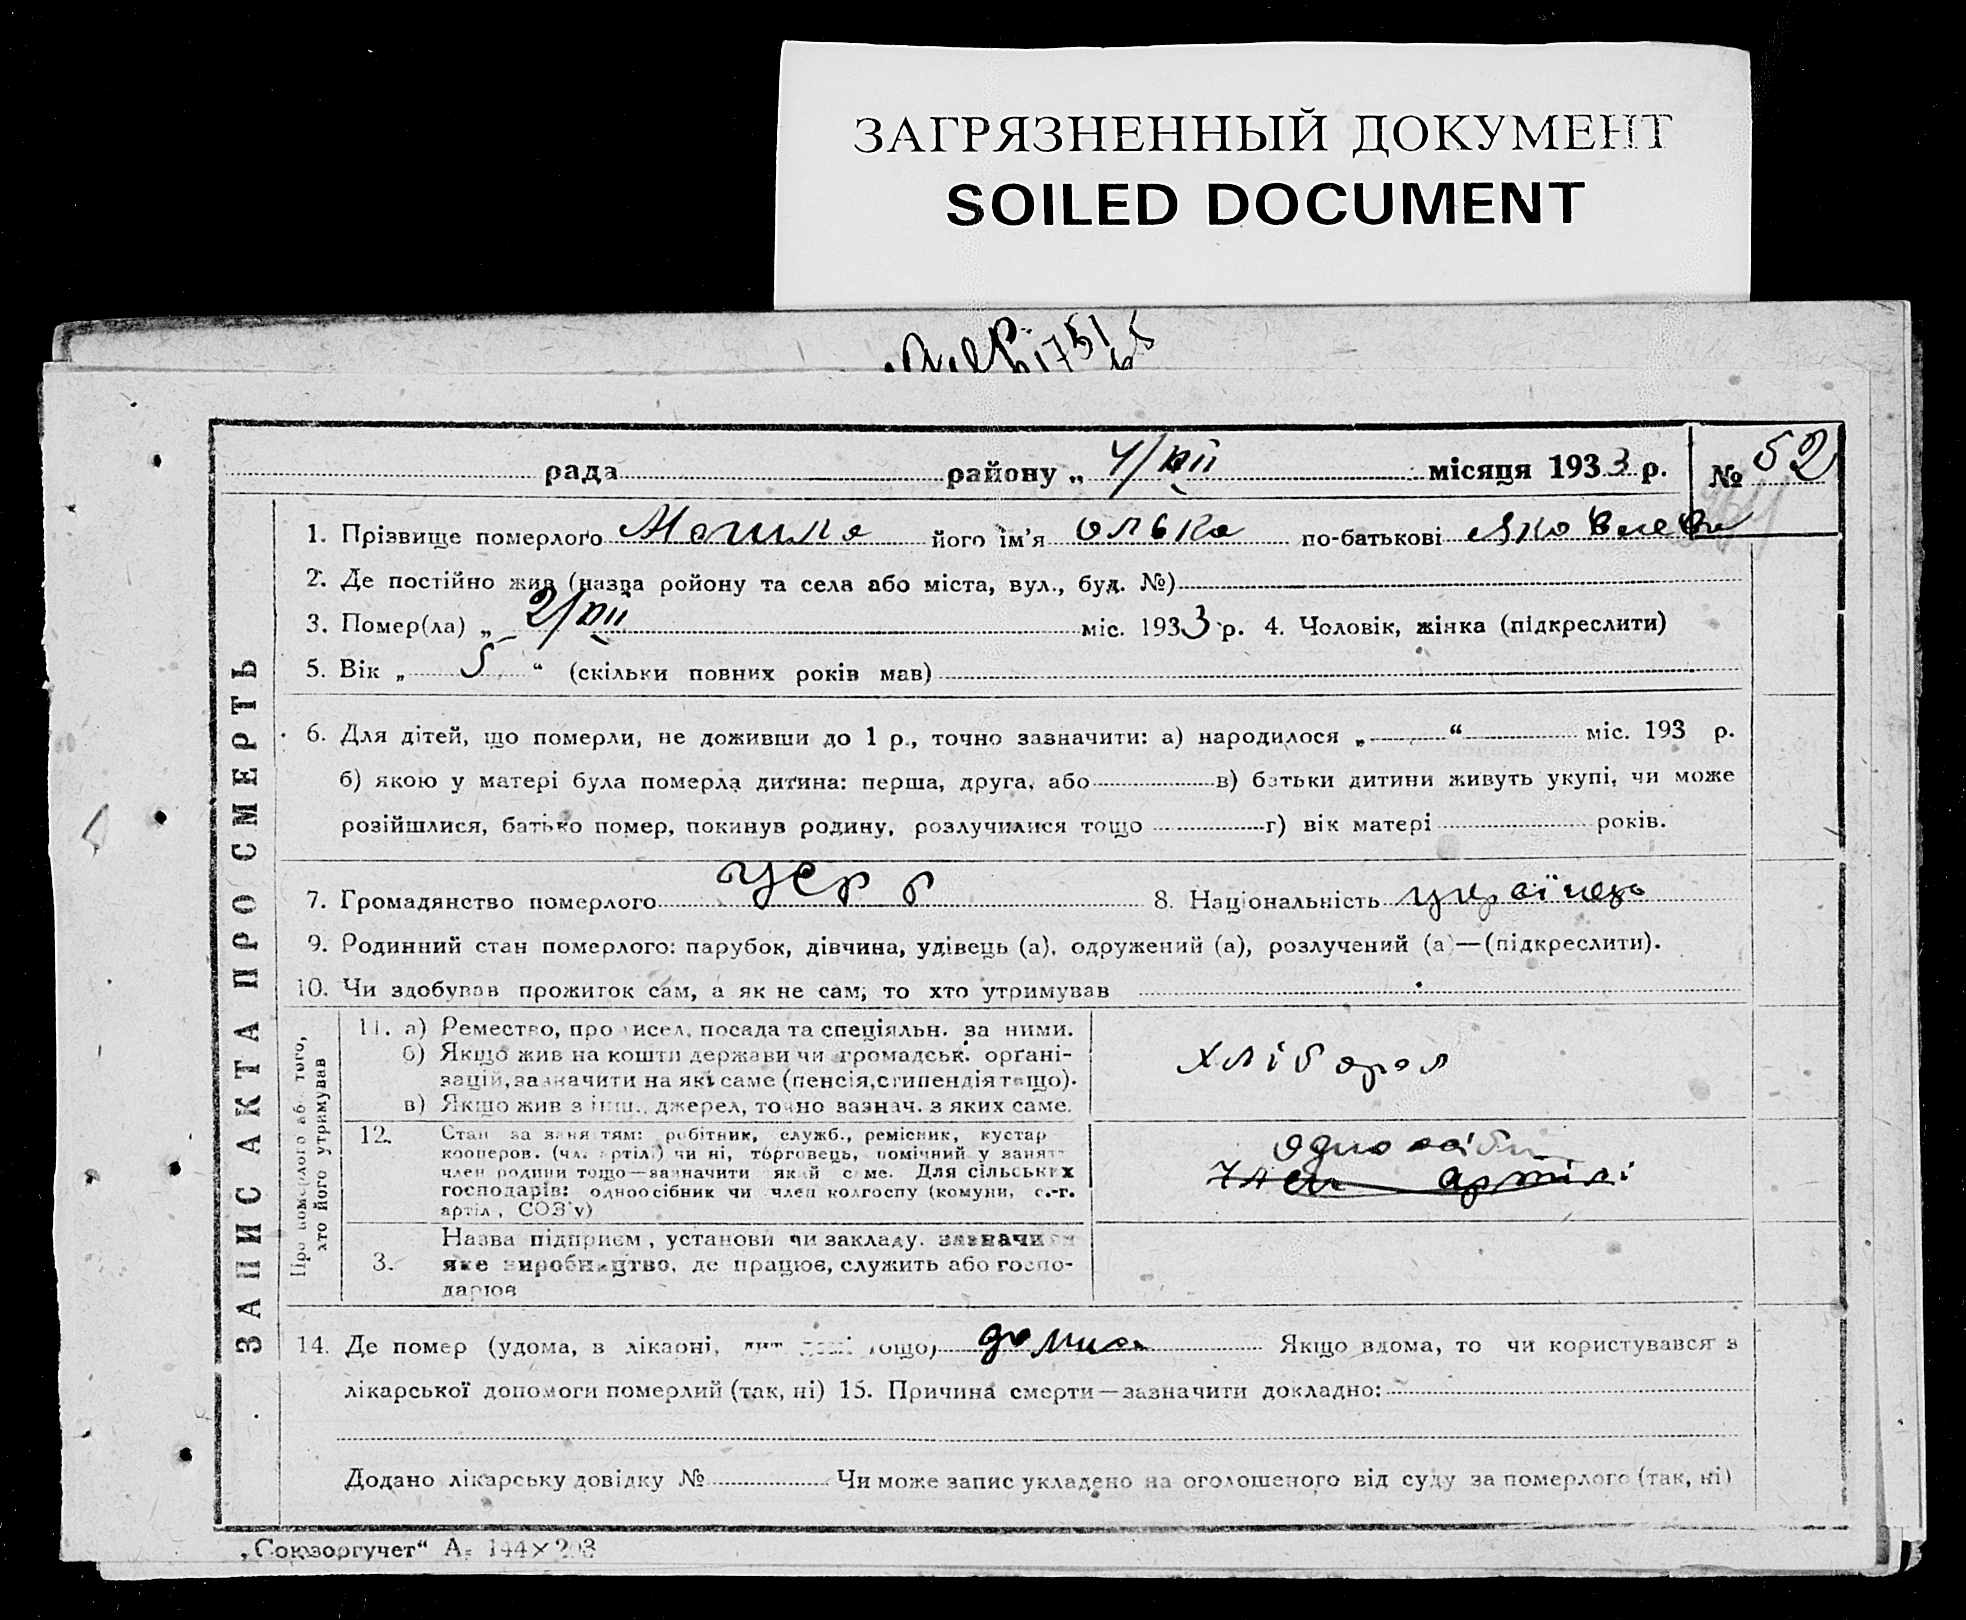 ЗАГРЯЗНЕННЫЙ ДОКУМЕНТ
SOILED DOCUMENT
рада району „ 4/VIII місяця 1933 р. № 52
ЗАПИС АКТА ПРО СМЕРТЬ
1. Прізвище померлого його ім'я Олька по-батькові Яковлевн
2. Де постійно жив (назва ройону та села або міста, вул., буд. №)
3. Помер(ла) „ 2/VIII міс. 1933 р. 4. Чоловік, жінка (підкреслити)
5. Вік „ 5 “ (скільки повних років мав)
6. Для дітей, що померли, не доживши до 1 р., точно зазначити: а) народилося „ “ міс. 193 р.
б) якою у матері була померла дитина: перша, друга, або в) батьки дитини живуть укупі, чи може
розійшлися, батько помер, покинув родину, розлучилися тощо г) вік матері років.
7. Громадянство померлого УСРР 8. Національність українець
9. Родинний стан померлого: парубок, дівчина, удівець (а), одружений (а), розлучений (а)—(підкреслити).
10. Чи здобував прожиток сам, а як не сам, то хто утримував
Про померлого або того,
хто його утримував
11. а) Ремество, промисел, посада та спеціяльн. за ними.
б) Якщо жив на кошти держави чи громадськ. органі-
зацій, зазначити на які саме (пенсія, стипендія тощо).
в) Якщо жив з інш. джерел, точно зазнач. з яких саме.
хлібороб
12. Стан за заняттям: робітник, служб., ремісник, кустар
кооперов. (чл. артілі) чи ні, торговець, помічний у занятт
член родини тощо—зазначити який саме. Для сільських
господарів: одноосібник чи член колгоспу (комуни, с.-г.
артіл, СОЗ'у)
одноосібн
член артілі
3. Назва підприєм, установи чи закладу. зазначити
яке виробництво, де працює, служить або госпо-
дарює
14. Де помер (удома, в лікарні, тощо) дома Якщо вдома, то чи користувався з
лікарської допомоги померлий (так, ні) 15. Причина смерти—зазначити докладно:
Додано лікарську довідку № Чи може запис укладено на оголошеного від суду за померлого (так, ні)
„Союзоргучет“ А₅ 144×203